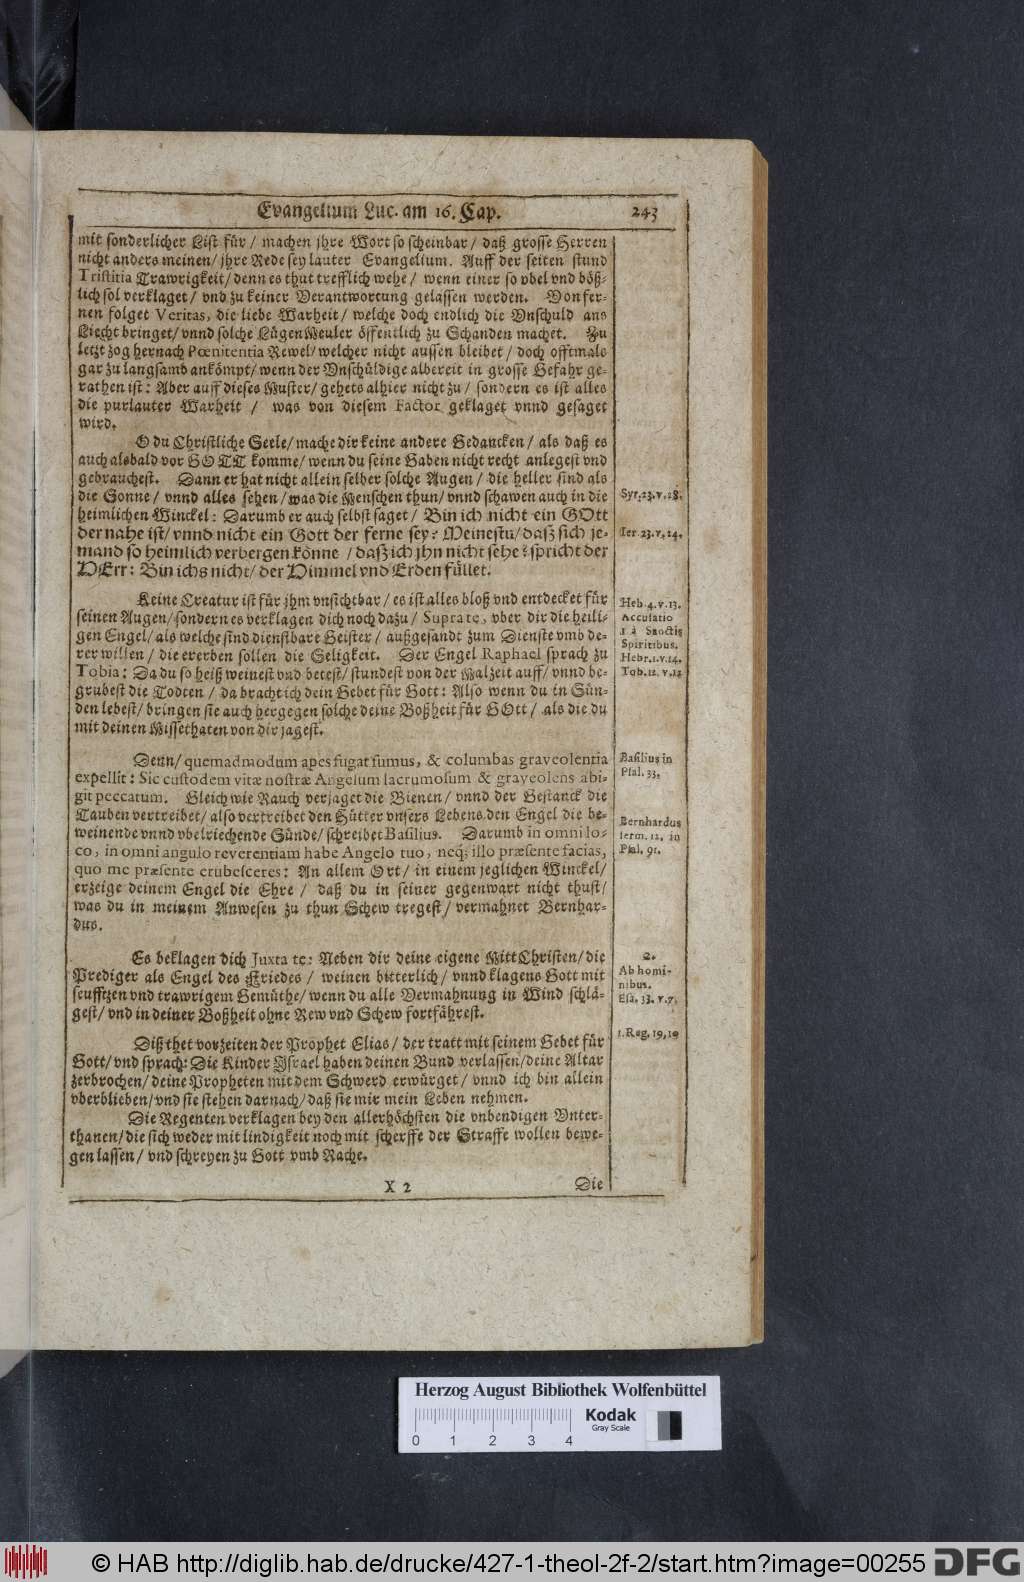 Evangelium Luc. am 16. Cap. 243
mit sonderlicher List für / machen jhre Wort so scheinbar / daß grosse Herren
nicht anders meinen / jhre Rede sey lauter Evangelium. Auff der seiten stund
Tristitia Trawrigkeit / denn es thut trefflich wehe / wenn einer so vbel vnd böß-
lich sol verklaget / vnd zu keiner Verantwortung gelassen werden. Von fer-
nen folget Veritas, die liebe Warheit / welche doch endlich die Vnschuld ans
Liecht bringet / vnnd solche LügenMeuler öffentlich zu Schanden machet. Zu
letzt zog hernach Pœnitentia Rewel / welcher nicht aussen bleibet / doch offtmals
gar zu langsamb ankömpt / wenn der Vnschüldige albereit in grosse Gefahr ge-
rathen ist: Aber auff dieses Muster / gehets alhier nicht zu / sondern es ist alles
die purlauter Warheit / was von diesem Factor geklaget vnnd gesaget
wird.
O du Christliche Seele / mache dir keine andere Gedancken / als daß es
auch alsbald vor GOTT komme / wenn du seine Gaben nicht recht anlegest vnd
gebrauchest. Dann er hat nicht allein selber solche Augen / die heller sind als
die Sonne / vnnd alles sehen / was die Menschen thun / vnnd schawen auch in die
heimlichen Winckel: Darumb er auch selbst saget / Bin ich nicht ein GOtt
der nahe ist / vnnd nicht ein Gott der ferne sey: Meinestu / daß sich je-
mand so heimlich verbergen könne / daß ich jhn nicht sehe? spricht der
HErr: Bin ichs nicht / der Himmel vnd Erden füllet.
Syr. 23. v. 28.
Ier. 23. v. 24.
Keine Creatur ist für jhm vnsichtbar / es ist alles bloß vnd entdecket für
seinen Augen / sondern es verklagen dich noch dazu / Supra te, vber dir die heili-
gen Engel / als welche sind dienstbare Geister / außgesandt zum Dienste vmb de-
rer willen / die ererben sollen die Seligkeit. Der Engel Raphael sprach zu
Tobia: Da du so heiß weinest vnd betest / stundest von der Malzeit auff / vnnd be-
grubest die Todten / da bracht ich dein Gebet für Gott: Also wenn du in Sün-
den lebest / bringen sie auch hergegen solche deine Boßheit für GOtt / als die du
mit deinen Missethaten von dir jagest.
Heb. 4. v. 13.
Accusatio
1 à Sanctis
Spiritibus.
Hebr. 1. v. 14.
Tob. 12. v. 12
Denn / quemadmodum apes fugat fumus, & columbas graveolentia
expellit: Sic custodem vitæ nostræ Angelum lacrumosum & graveolens abi-
git peccatum. Gleich wie Rauch verjaget die Bienen / vnnd der Gestanck die
Tauben vertreibet / also vertreibet den Hütter vnsers Lebens den Engel die be-
weinende vnnd vbelriechende Sünde / schreibet Basilius. Darumb in omni lo-
co, in omni angulo reverentiam habe Angelo tuo, neq; illo præsente facias,
quo me præsente erubesceres: An allem Ort / in einem jeglichen Winckel /
erzeige deinem Engel die Ehre / daß du in seiner gegenwart nicht thust /
was du in meinem Anwesen zu thun Schew tregest / vermahnet Bernhar-
dus.
Basilius in
Psal. 33.
Bernhardus
serm. 12. in
Psal. 91.
Es beklagen dich Juxta te: Neben dir deine eigene MittChristen / die
Prediger als Engel des Friedes / weinen bitterlich / vnnd klagens Gott mit
seufftzen vnd trawrigem Gemüthe / wenn du alle Vermahnung in Wind schlä-
gest / vnd in deiner Boßheit ohne Rew vnd Schew fortfährest.
2.
Ab homi-
nibus.
Esa. 33. v. 7.
Diß thet vorzeiten der Prophet Elias / der tratt mit seinem Gebet für
Gott / vnd sprach: Die Kinder Israel haben deinen Bund verlassen / deine Altar
zerbrochen / deine Propheten mit dem Schwerd erwürget / vnnd ich bin allein
vberblieben / vnd sie stehen darnach / daß sie mir mein Leben nehmen.
1. Reg. 19, 10
Die Regenten verklagen bey den allerhöchsten die vnbendigen Vnter-
thanen / die sich weder mit lindigkeit noch mit scherffe der Straffe wollen bewe-
gen lassen / vnd schreyen zu Gott vmb Rache.
X 2 Die
Herzog August Bibliothek Wolfenbüttel
Kodak
Gray Scale
0 1 2 3 4
© HAB http://diglib.hab.de/drucke/427-1-theol-2f-2/start.htm?image=00255 DFG